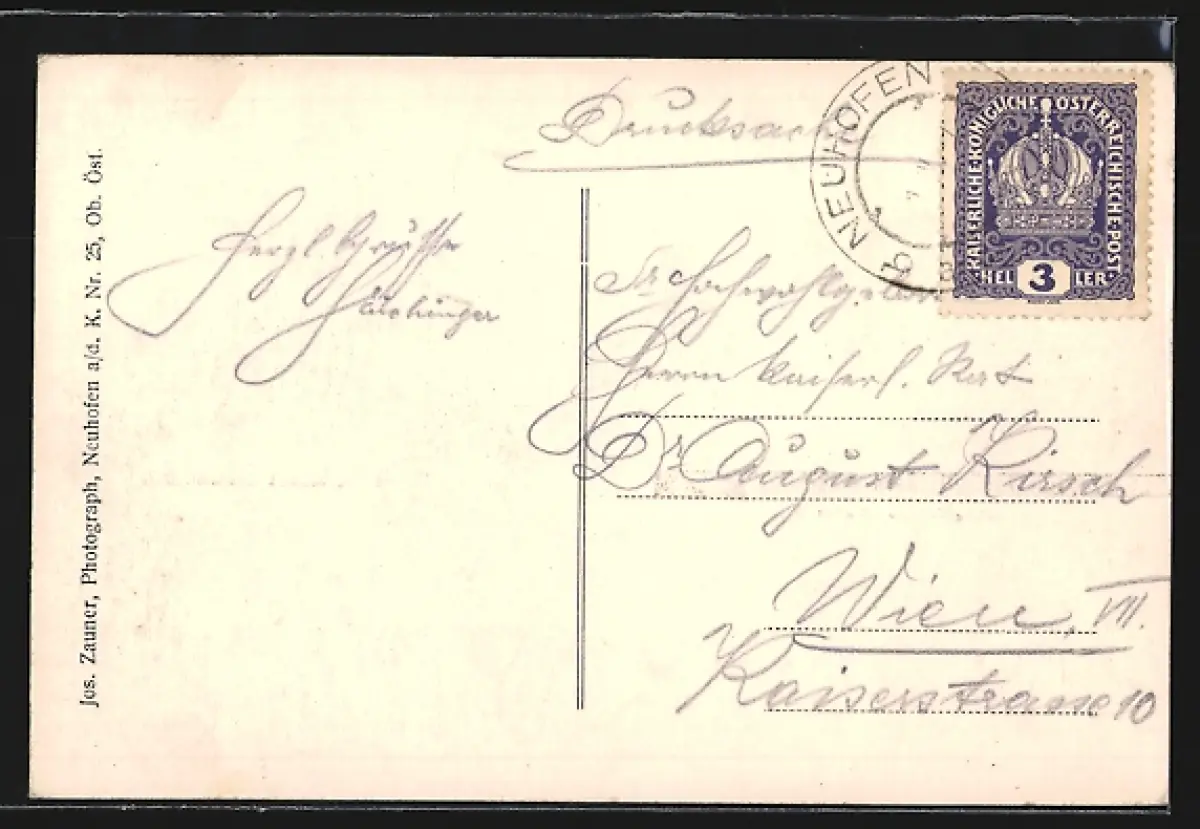 Drucksache
NEUHOFEN
KAISERLICHE·KÖNIGLICHE ÖSTERREICHISCHE·POST
HEL 3 LER
Herzl. Grüsse
Sr Hochwohlgeboren
Herrn Kaiserl. Rat
Dr August Kirsch
Wien, VII.
Kaiserstrasse 10
Jos. Zauner, Photograph, Neuhofen a/d. K. Nr. 25, Ob. Öst.